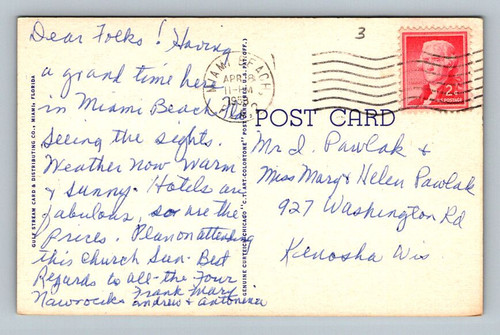 Dear Folks! Having
a grand time here
in Miami Beach, Fla
Seeing the sights.
Weather now warm
& sunny. Hotels are
fabulous, so are the
prices. Plan on attending
this church Sun. Best
Regards to all - the Four
Nawrockis Frank Mary
Andrew & Antoinette
GULF STREAM CARD & DISTRIBUTING CO., MIAMI, FLORIDA
GENUINE CURTEICH-CHICAGO "C.T. ART-COLORTONE" POST CARD
3
MIAMI BEACH
APR 8
2¢
POSTAGE
POST CARD
Mr I. Pawlak &
Miss Mary & Helen Pawlak
927 Washington Rd
Kenosha Wis